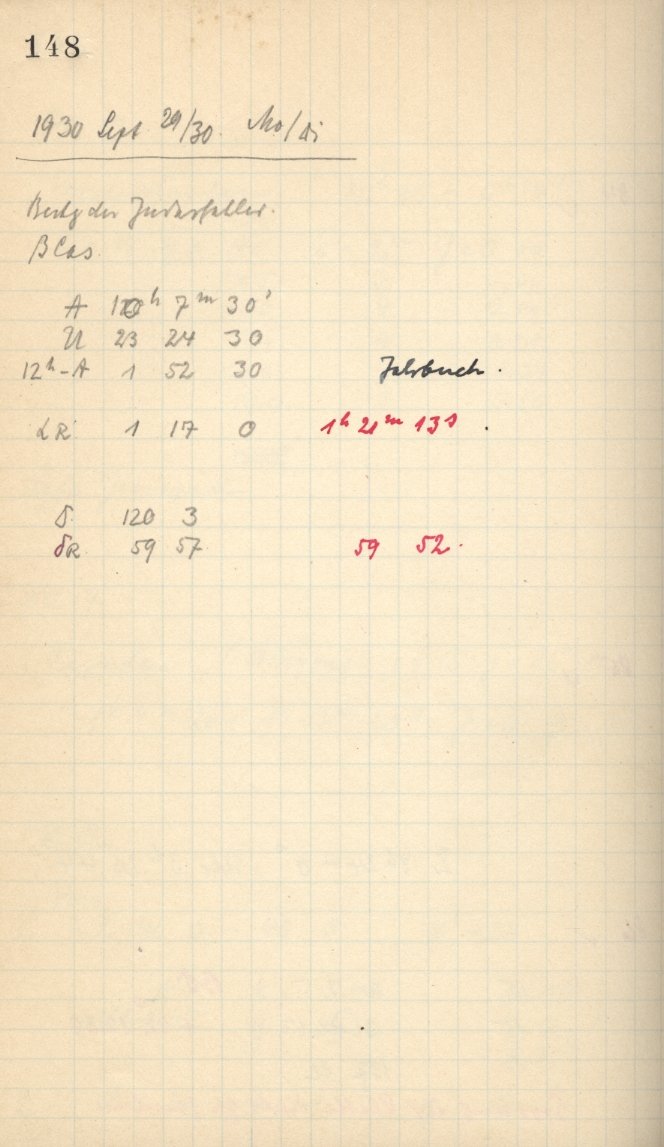 148
1930 Sept 29/30. Mo/Di
Bestg der Indexfehler.
β Cas.
A 10h 7m 30s
U 23 24 30
12h-A 1 52 30 Jahrbuch.
αR 1 17 0 1h 21m 13s.
δ 120 3
δR 59 57 59 52.